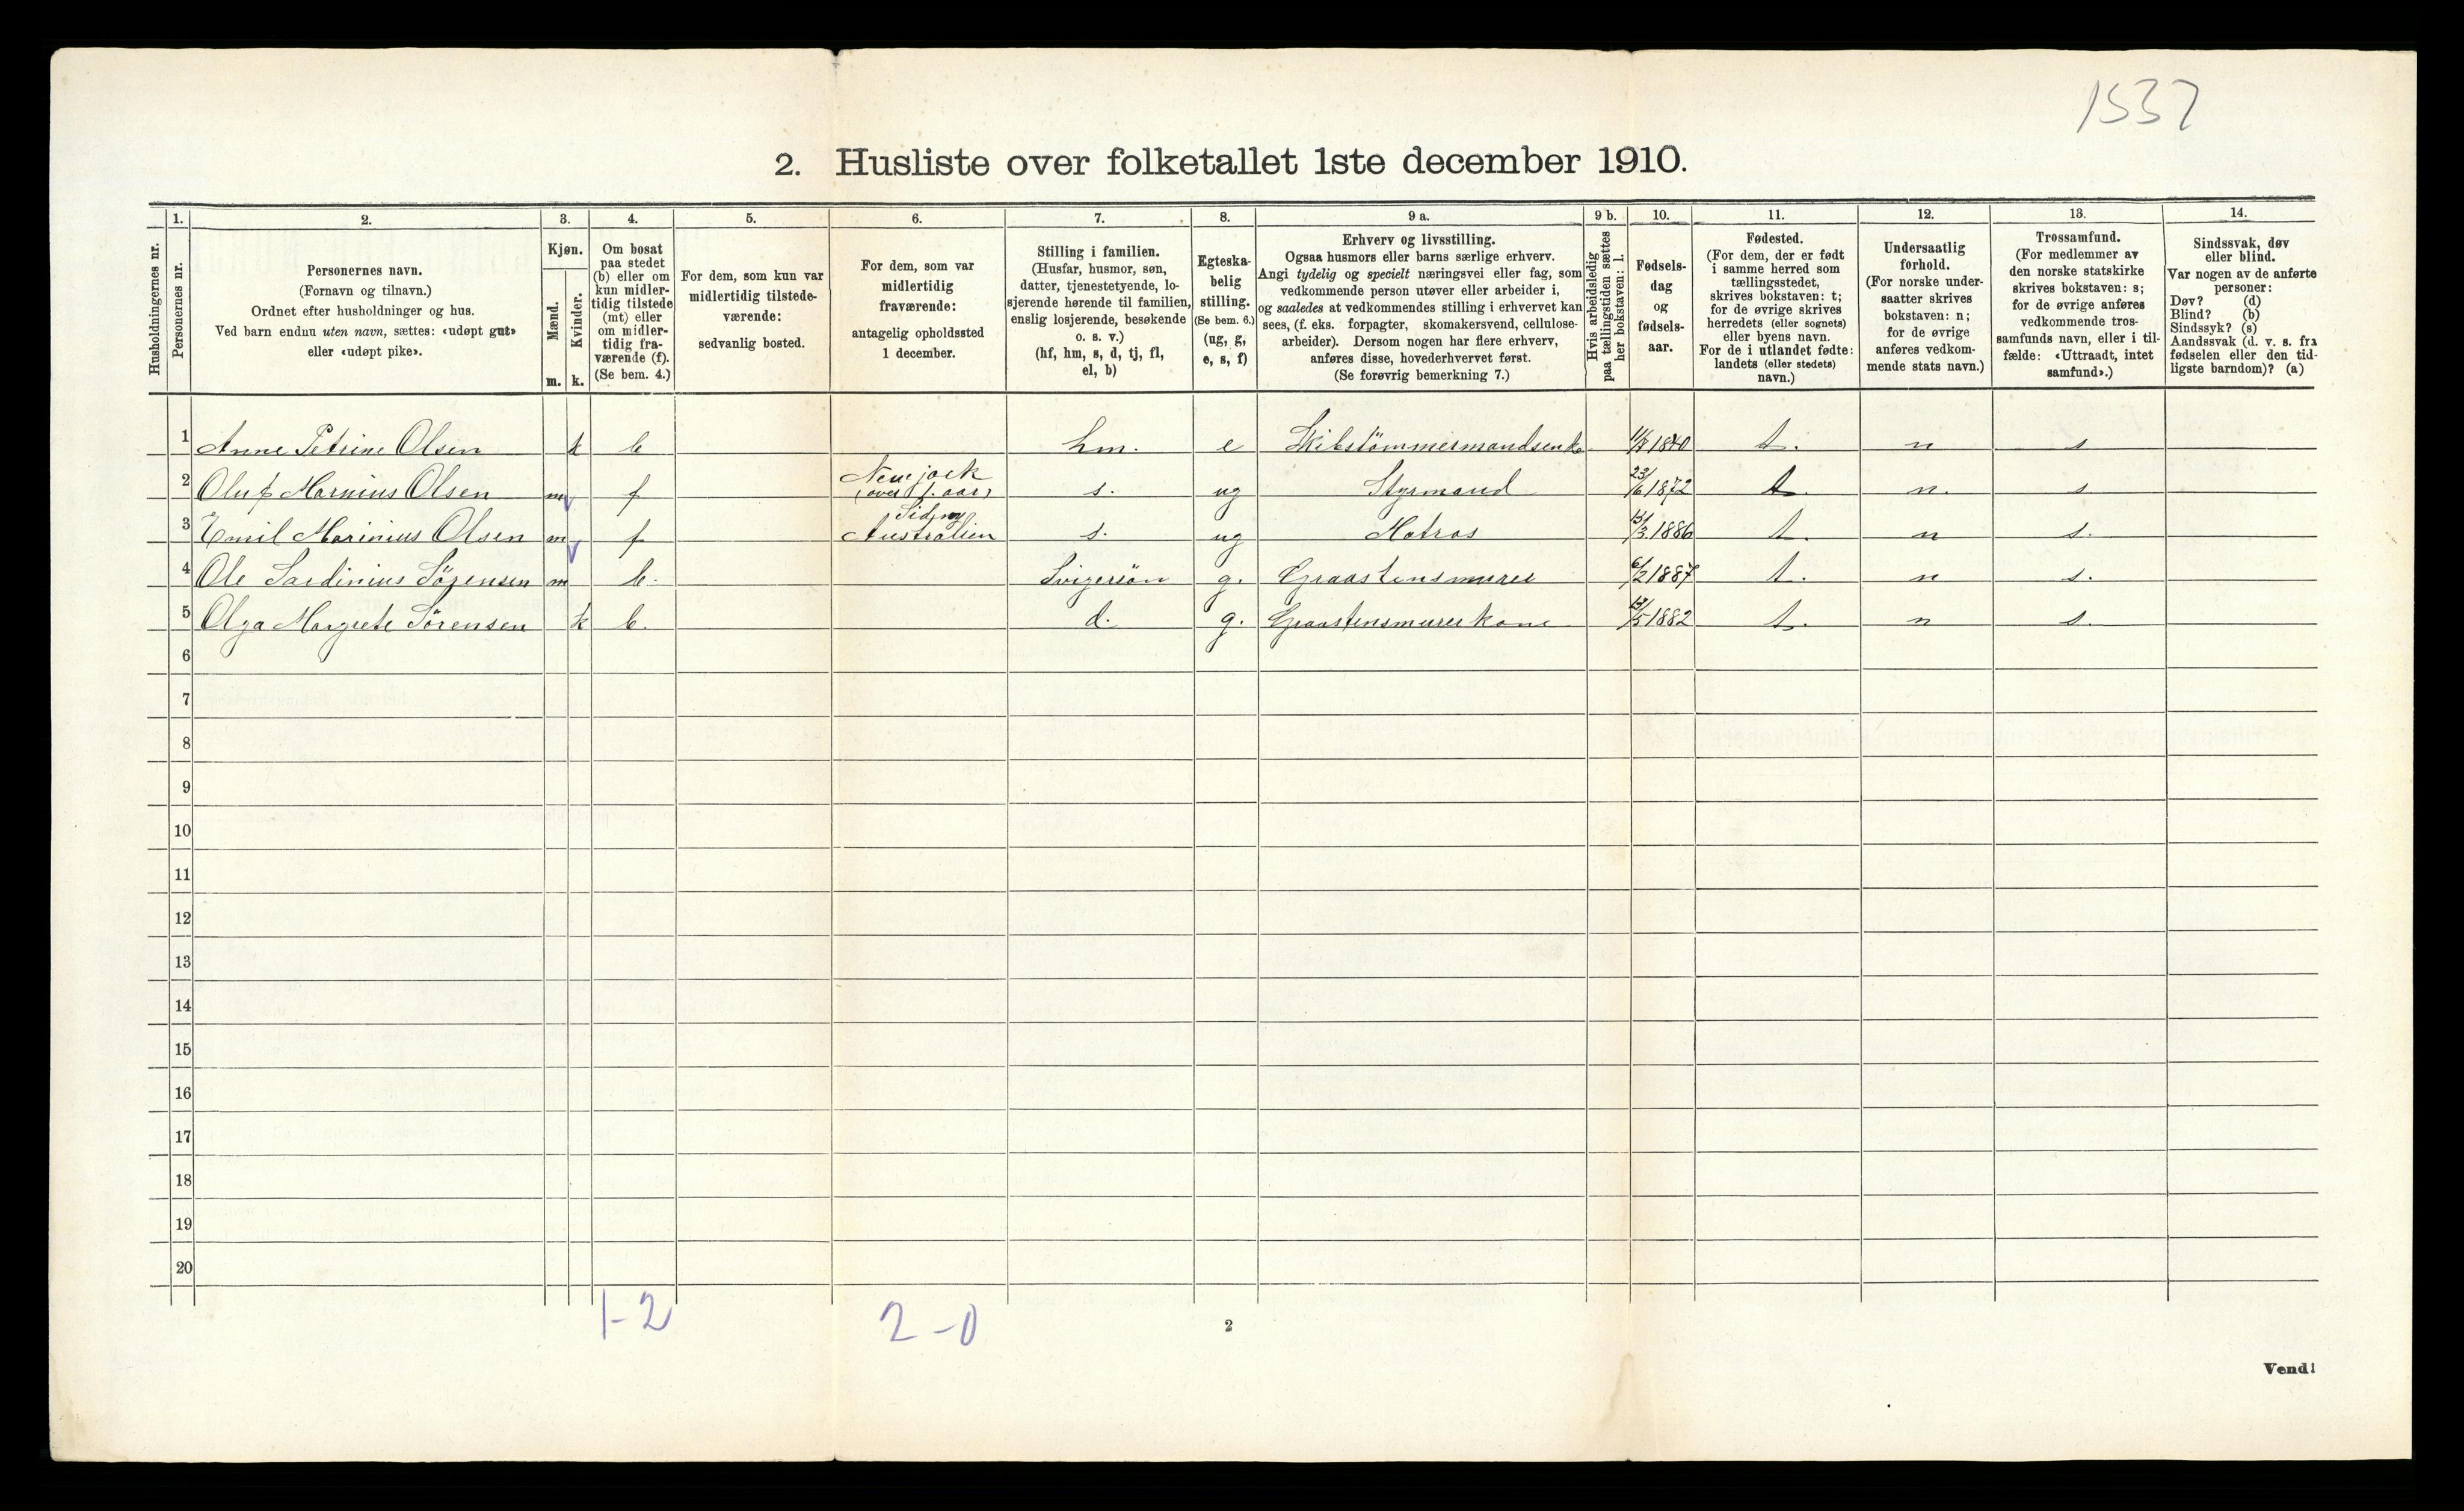 1537
2. Husliste over folketallet 1ste december 1910.
Husholdningernes nr.
1.
Personernes nr.
2.
Personernes navn.
(Fornavn og tilnavn.)
Ordnet efter husholdninger og hus.
Ved barn endnu uten navn, sættes: «udøpt gut»
eller «udøpt pike».
3.
Kjøn.
Mænd.
Kvinder.
m. k.
4.
Om bosat
paa stedet
(b) eller om
kun midler-
tidig tilstede
(mt) eller
om midler-
tidig fra-
værende (f).
(Se bem. 4.)
5.
For dem, som kun var
midlertidig tilstede-
værende:
sedvanlig bosted.
6.
For dem, som var
midlertidig
fraværende:
antagelig opholdssted
1 december.
7.
Stilling i familien.
(Husfar, husmor, søn,
datter, tjenestetyende, lo-
sjerende hørende til familien,
enslig losjerende, besøkende
o. s. v.)
(hf, hm, s, d, tj, fl,
el, b)
8.
Egteska-
belig
stilling.
(Se bem. 6.)
(ug, g,
e, s, f)
9 a.
Erhverv og livsstilling.
Ogsaa husmors eller barns særlige erhverv.
Angi tydelig og specielt næringsvei eller fag, som
vedkommende person utøver eller arbeider i,
og saaledes at vedkommendes stilling i erhvervet kan
sees, (f. eks. forpagter, skomakersvend, cellulose-
arbeider). Dersom nogen har flere erhverv,
anføres disse, hovederhvervet først.
(Se forøvrig bemerkning 7.)
9 b.
Hvis arbeidsledig
paa tællingstiden sættes
her bokstaven: l.
10.
Fødsels-
dag
og
fødsels-
aar.
11.
Fødested.
(For dem, der er født
i samme herred som
tællingsstedet,
skrives bokstaven: t;
for de øvrige skrives
herredets (eller sognets)
eller byens navn.
For de i utlandet fødte:
landets (eller stedets)
navn.)
12.
Undersaatlig
forhold.
(For norske under-
saatter skrives
bokstaven: n;
for de øvrige
anføres vedkom-
mende stats navn.)
13.
Trossamfund.
(For medlemmer av
den norske statskirke
skrives bokstaven: s;
for de øvrige anføres
vedkommende tros-
samfunds navn, eller i til-
fælde: «Uttraadt, intet
samfund».)
14.
Sindssvak, døv
eller blind.
Var nogen av de anførte
personer:
Døv? (d)
Blind? (b)
Sindssyk? (s)
Aandssvak (d. v. s. fra
fødselen eller den tid-
ligste barndom)? (a)
1 Anne Petrine Olsen k b hm. e Skibstömmermandsenke 1840 t. n s
2 Oluf Marnius Olsen m f Neujork (over 1. aar) s. ug Styrmand 23/6 1872 t. n. s
3 Emil Marinius Olsen m f Sidney Australien s. ug Matros 1886 t. n s.
4 Ole Sardinius Sörensen m b. Svigersön g. Graastensmurer 6/2 1887 t. n s.
5 Olga Margrete Sörensen k b. d. g. Graastensmurerkone 1882 t. n s.
6
7
8
9
10
11
12
13
14
15
16
17
18
19
20
1-2
2-0
2
Vend!